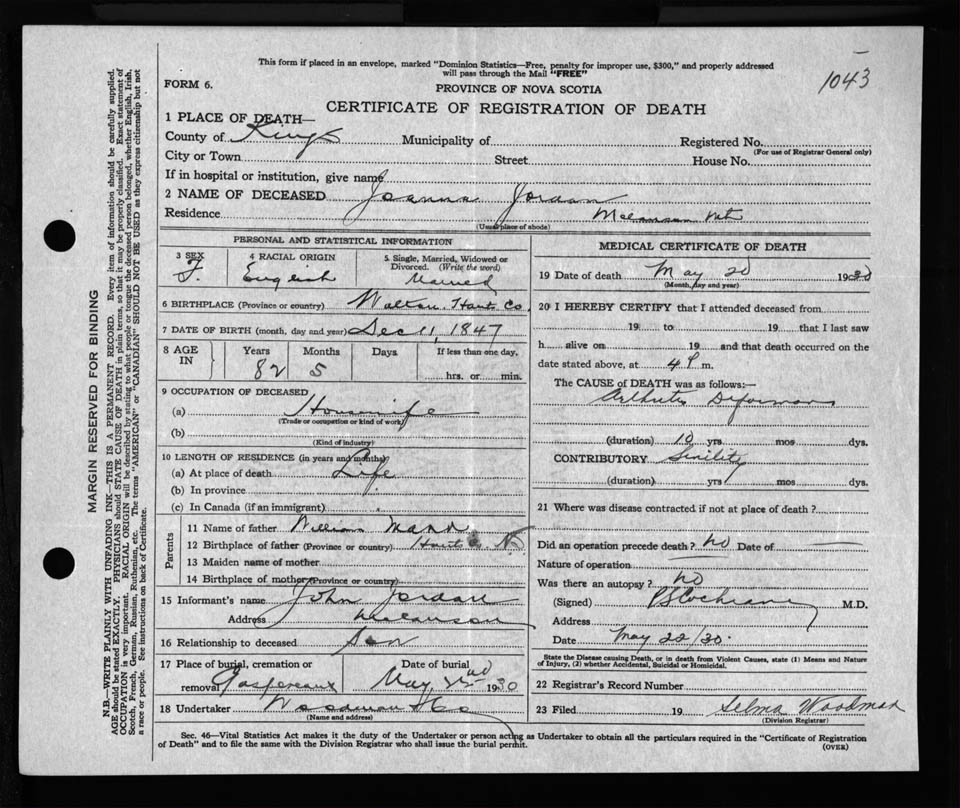 This form if placed in an envelope, marked "Dominion Statistics—Free, penalty for improper use, $300," and properly addressed
will pass through the Mail "FREE"
1043
FORM 6.
PROVINCE OF NOVA SCOTIA
CERTIFICATE OF REGISTRATION OF DEATH
1 PLACE OF DEATH—
County of Kings Municipality of Registered No.
(For use of Registrar General only)
City or Town Street House No.
If in hospital or institution, give name
2 NAME OF DECEASED Joanna Jordan
Residence Melanson
(Usual place of abode)
PERSONAL AND STATISTICAL INFORMATION
3 SEX 4 RACIAL ORIGIN 5 Single, Married, Widowed or
Divorced. (Write the word)
F. English Married
6 BIRTHPLACE (Province or country) Walton Hants Co.
7 DATE OF BIRTH (month, day and year) Dec 11, 1847
8 AGE IN Years Months Days If less than one day,
82 5 hrs. or min.
9 OCCUPATION OF DECEASED
(a) Housewife
(Trade or occupation or kind of work)
(b)
(Kind of industry)
10 LENGTH OF RESIDENCE (in years and months)
(a) At place of death Life
(b) In province
(c) In Canada (if an immigrant)
Parents
11 Name of father William
12 Birthplace of father (Province or country) Hants Co.
13 Maiden name of mother
14 Birthplace of mother (Province or country)
15 Informant's name John Jordan
Address Melanson
16 Relationship to deceased Son
17 Place of burial, cremation or Date of burial
removal Gaspereaux May 22nd 1930
18 Undertaker Woodman
(Name and address)
MEDICAL CERTIFICATE OF DEATH
19 Date of death May 20 1930
(Month, day and year)
20 I HEREBY CERTIFY that I attended deceased from
19 to 19 that I last saw
h alive on 19 and that death occurred on the
date stated above, at 4 P m.
The CAUSE of DEATH was as follows:—
Arthritis Deformans
(duration) 10 yrs mos dys.
CONTRIBUTORY Senility
(duration) yrs mos dys.
21 Where was disease contracted if not at place of death?
Did an operation precede death? no Date of
Nature of operation
Was there an autopsy? no
(Signed) Cochrane M.D.
Address
Date May 22/30.
State the Disease causing Death, or in death from Violent Causes, state (1) Means and Nature
of Injury, (2) whether Accidental, Suicidal or Homicidal.
22 Registrar's Record Number
23 Filed 19 Selma Woodman
(Division Registrar)
Sec. 46—Vital Statistics Act makes it the duty of the Undertaker or person acting as Undertaker to obtain all the particulars required in the "Certificate of Registration
of Death" and to file the same with the Division Registrar who shall issue the burial permit.
(OVER)
MARGIN RESERVED FOR BINDING
N.B.—WRITE PLAINLY WITH UNFADING INK—THIS IS A PERMANENT RECORD. Every item of information should be carefully supplied.
AGE should be stated EXACTLY. PHYSICIANS should STATE CAUSE OF DEATH in plain terms, so that it may be properly classified. Exact statement of
OCCUPATION is very important. RACIAL ORIGIN will be described by stating to what people or tongue the deceased person belonged, whether English, Irish,
Scotch, French, German, Russian, Ruthenian, etc. The terms "AMERICAN" or "CANADIAN" SHOULD NOT BE USED as they express citizenship but not
a race or people. See instructions on back of Certificate.